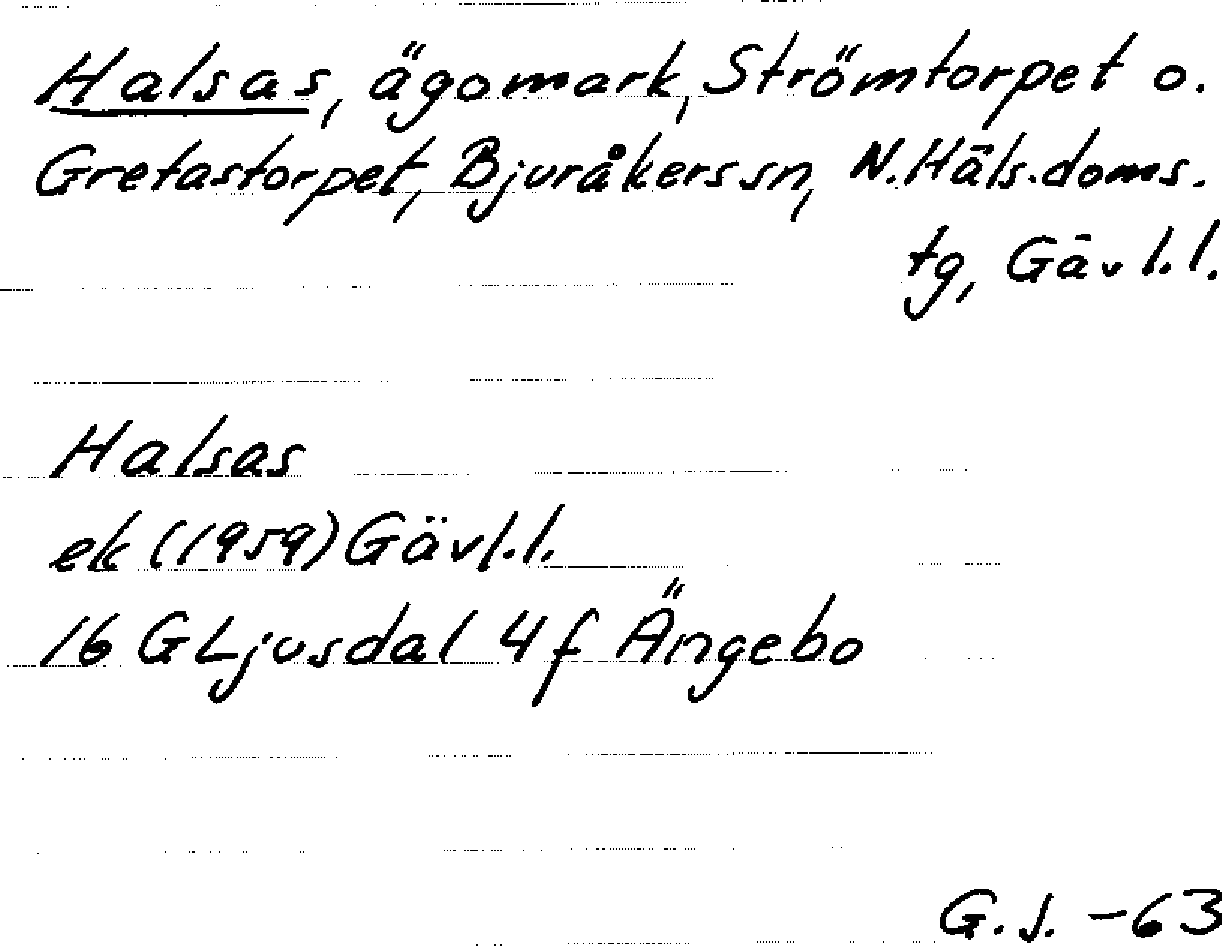 Halsas, ägomark, Strömtorpet o.
Gretastorpet, Bjuråkers sn, N. Häls. doms.
tg, Gävl. l.
Halsas
ek (1959) Gävl. l.
16 G Ljusdal 4 f Ängebo
G. J. -63